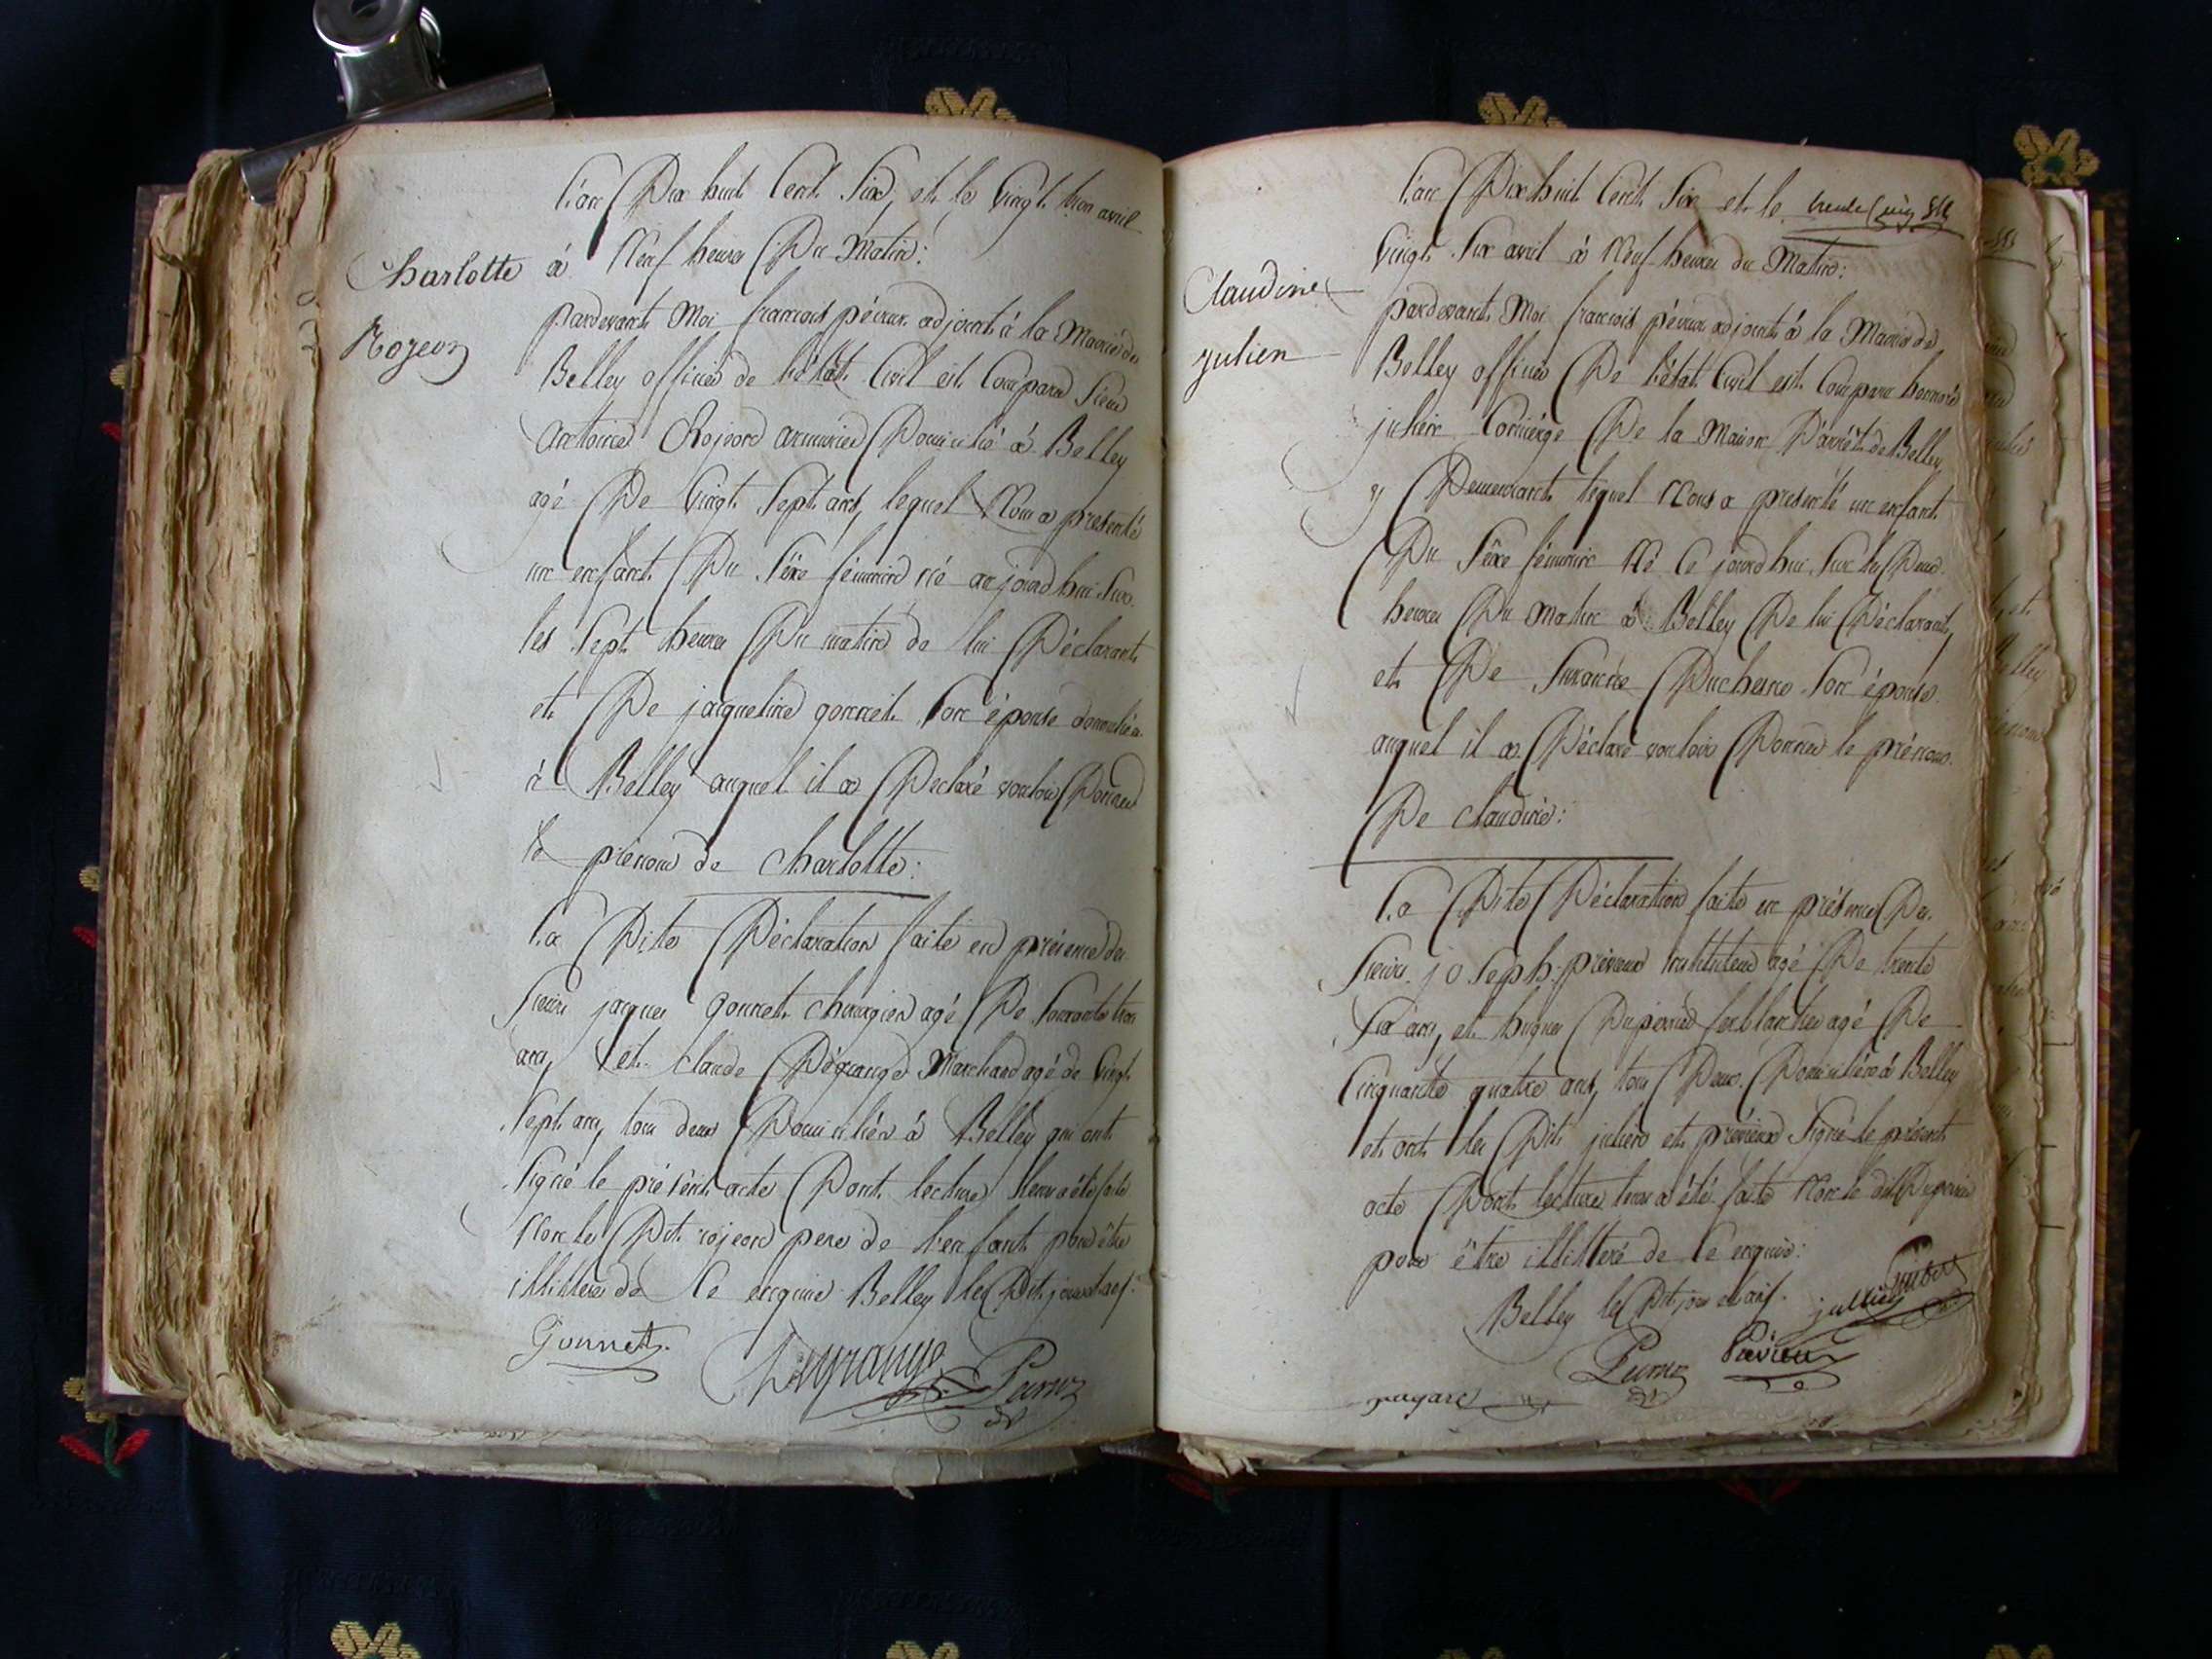 L'an Dix huit Cent Six, et le Vingt trois avril
à Neuf heures Du Matin:
Charlotte
Rojeon
pardevant Moi francois pévieux adjoint à la Mairie de
Belley officier de l'état Civil est Comparu Sieur
antoine Rojeon armurier Domicilié à Belley
agé De Vingt Sept ans, lequel Nous a presenté
un enfant Du Sexe féminin né aujourd'hui Sur
les Sept heures Du matin de lui Déclarant
et De jacqueline gonnet Son épouse domiciliée
à Belley auquel il a Declaré vouloir Donner
le prénom de Charlotte:
La Dite Déclaration faite en présence des
Sieurs jacques gonnet chirurgien agé De Soixante trois
ans, et claude Dégrange Marchand agé de Vingt
Sept ans, tous deux Domiciliés à Belley qui ont
Signé le présent acte Dont lecture leur a été faite
Non le Dit rojeon pere de l'enfant pour être
illitteré de Ce enquis Belley les Dit jour et an.
Gonnet
Dégrange
trente Cinq
L'an Dix huit Cent Six et le
Vingt Six avril à Neuf heures du Matin:
Claudine
julien
pardevant Moi francois pévieux adjoint à la Mairie de
Belley officier De l'état Civil est Comparu honnoré
julien Concierge De la Maison D'arrêt de Belley
y Demeurant lequel Nous a presenté un enfant
Du Sexe féminin Né Ce jourd'hui Sur les Deux
heures Du Matin à Belley De lui Déclarant,
et De Suzanne Duchesne Son épouse
auquel il a Déclaré vouloir Donner le prénom
De Claudine:
La Dite Déclaration faite en présence Des
Sieurs joseph prévieux instituteur agé De trente
Six ans, et hugues Duperrier ferblantier agé De
Cinquante quatre ans, tous Deux Domiciliés à Belley
et ont les Dit julien et prévieux Signé le présent
acte Dont lecture leur a été faite Non le dit Duperrier
pour être illitteré de Ce enquis:
Belley les Dit jour et an.
jullien